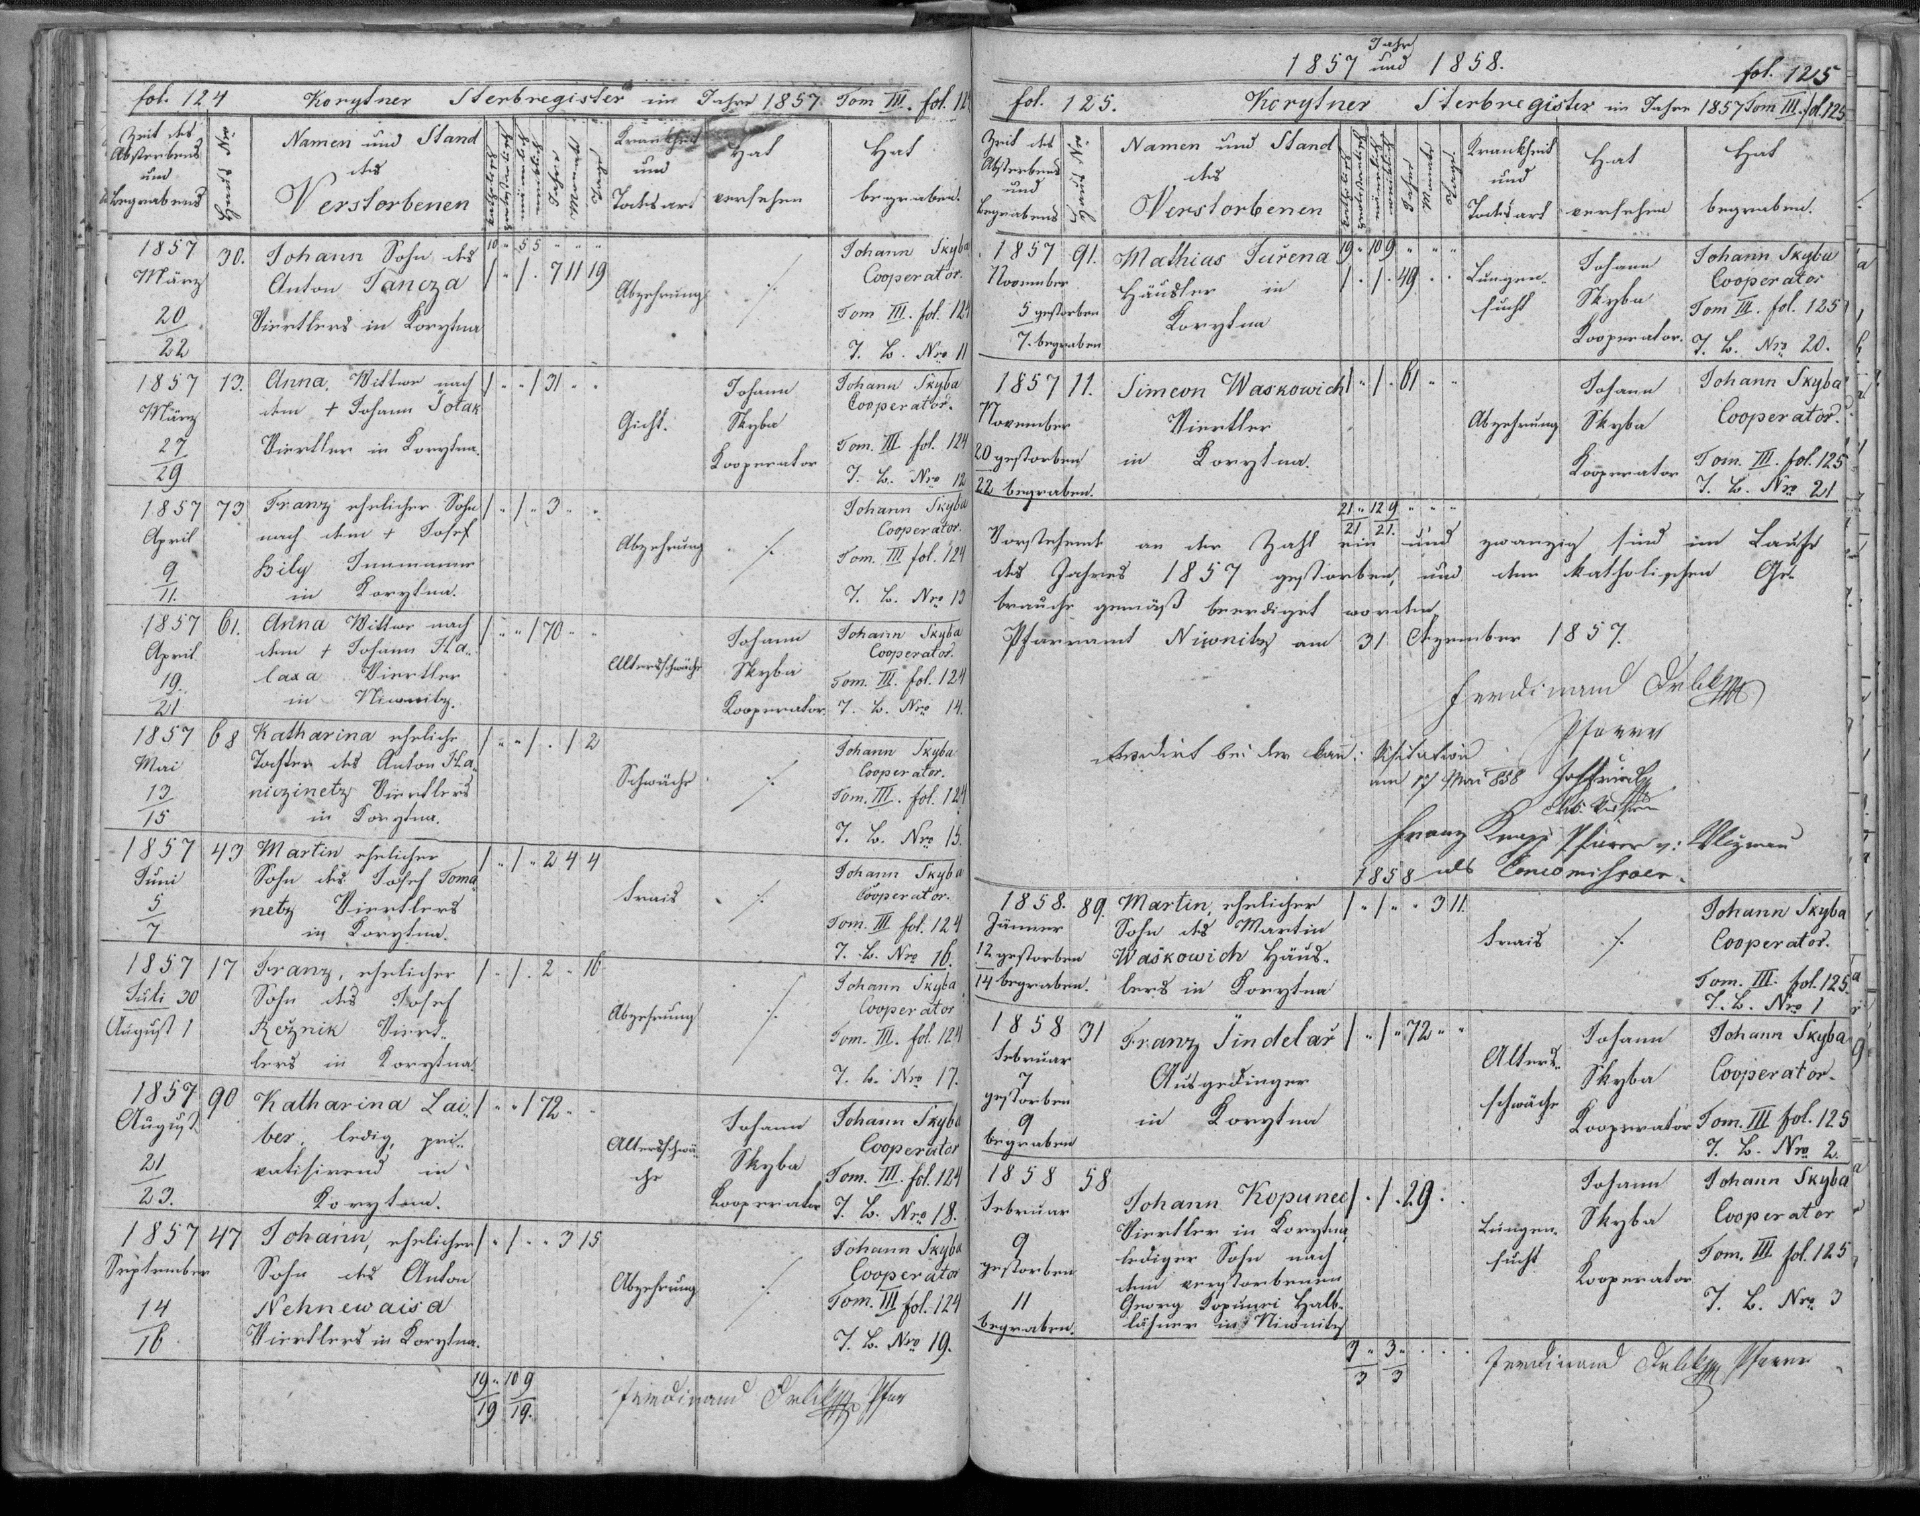 fol. 124 Korytner Sterbregister im Jahre 1857 Tom III. fol. 124
Zeit des
Absterbens
und
Begrabens
Haus Nro
Namen und Stand
des
Verstorbenen
katholisch
protestantisch
männlich
weiblich
Jahre
Monate
Tage
Krankheit
und
Todesart
Hat
versehen
Hat
begraben.
10 " 5 5 " " "
1857 30. Johann Sohn des 1 " 1 . 7 11 19 Johann Skyba
März Anton Jancza Abzehrung ./. Cooperator.
20 Viertlers in Korytna Tom III. fol. 124
22 T. B. Nro 11
1857 13. Anna, Wittwe nach 1 " " 1 31 " " Johann Johann Skyba
März dem + Johann Šotak Gicht. Skyba Cooperator.
27 Viertler in Korytna. Kooperator Tom. III fol. 124
29 T. B. Nro 12
1857 73 Franz ehelicher Sohn 1 " 1 " 3 " " Johann Skyba
April nach dem + Josef Abzehrung ./. Cooperator.
9 Bily Innmann Tom III fol. 124
11. in Korytna. T. B. Nro 13
1857 61. Anna Wittwe nach 1 " " 1 70 " " Johann Johann Skyba
April dem + Johann Ha- Altersschwäche Skyba Cooperator.
19. laxa Viertler Kooperator. Tom. III. fol. 124
21 in Niwnitz. T. B. Nro 14.
1857 68 Katharina eheliche 1 " " 1 . 1 2 Johann Skyba
Mai Tochter des Anton Ha- Schwäche ./. Cooperator.
13 niczinetz Viertlers Tom. III. fol. 124
15 in Korytna. T. B. Nro 15.
1857 43 Martin ehelicher 1 " 1 " 2 4 4 Johann Skyba
Juni Sohn des Josef Toma- Frais ./. Cooperator.
5 netz Viertlers Tom. III fol. 124
7 in Korytna. T. B. Nro 16.
1857 17 Franz, ehelicher 1 . 1 . 2 " 16 Johann Skyba
Juli 30 Sohn des Josef Abzehrung ./. Cooperator
August 1 Režnik Viert- Tom. III. fol. 124
lers in Korytna. T. B. Nro 17.
1857 90 Katharina Lai- 1 " " 1 72 " " Johann Johann Skyba
August ber, ledig, pri- Altersschwä- Skyba Cooperator
21 vatisirend in che Kooperator Tom. III. fol. 124
23. Korytna. T. B. Nro 18.
1857 47 Johann, ehelicher 1 " 1 " " 3 15 Johann Skyba
September Sohn des Anton Abzehrung ./. Cooperator
14 Nehnewaisa Tom. III fol. 124
16 Viertlers in Korytna. T. B. Nro 19.
19 " 10 9
19 19.
Ferdinand Pfar
Jahr
1857 und 1858.
fol. 125
fol. 125. Korytner Sterbregister im Jahre 1857 Tom III. fol. 125
Zeit des
Absterbens
und
Begrabens
Haus Nro
Namen und Stand
des
Verstorbenen
katholisch
protestantisch
männlich
weiblich
Jahre
Monate
Tage
Krankheit
und
Todesart
Hat
versehen
Hat
begraben.
19 " 10 9 " " "
1857 91. Mathias Juřena 1 . 1 . 49 . . Lungen- Johann Johann Skyba
November Häusler in sucht Skyba Cooperator
5 gestorben Korytna Kooperator. Tom III. fol. 125
7. begraben T. B. Nro 20.
1857 11. Simeon Waskowich 1 " 1 . 61 " " Johann Johann Skyba
November Viertler Abzehrung Skyba Cooperator.
20 gestorben in Korytna. Kooperator Tom. III. fol. 125
22 begraben. T. B. Nro 21
21 " 12 9 " " "
21 21.
Vorstehend an der Zahl ein und zwanzig sind im Laufe
des Jahres 1857 gestorben, und dem katholischen Ge-
brauche gemäß beerdiget worden
Pfarramt Niwnitz am 31 Dezember 1857.
Ferdinand
Pfarrer
bei der can: Visitation
am 17 Mai 858
Franz Pfarrer v:
1858 als Concomissaer.
1858. 89. Martin, ehelicher 1 " 1 " " 3 11 Johann Skyba
Jänner Sohn des Martin Frais ./. Cooperator.
12 gestorben Waškowich Häus- Tom. III. fol. 125.
14 begraben. lers in Korytna T. B. Nro 1
1858 31 Franz Šindelař 1 " 1 " 72 " " Johann Johann Skyba
Februar Ausgedinger Alters- Skyba Cooperator.
7 in Korytna schwäche Kooperator Tom. III fol. 125
gestorben T. B. Nro 2.
9
begraben
1858 58 Johann Kopunec 1 . 1 . 29 . . Johann Johann Skyba
Februar Viertler in Korytna, Lungen- Skyba Cooperator
9 lediger Sohn nach sucht Kooperator Tom. III fol. 125
gestorben dem verstorbenen T. B. Nro 3
11 Georg Halb-
begraben. lähner in Niwnitz
3 " 3 " . . .
3 3
Ferdinand Pfarrer